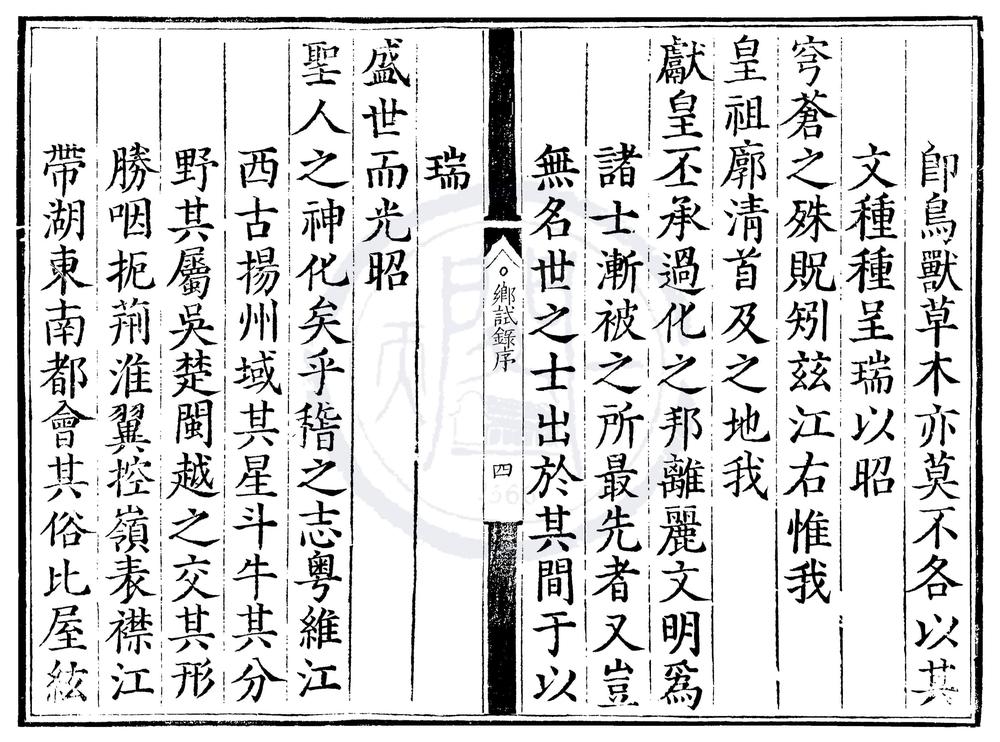 卽鳥獸草木亦莫不各以其
文種種呈瑞以昭
穹蒼之殊貺矧茲江右惟我
皇祖廓清首及之地我
獻皇丕承過化之邦離麗文明爲
諸士漸被之所最先者又豈
無名世之士出於其間于以
鄉試錄序
四
瑞
盛世而光昭
聖人之神化矣乎稽之志粵維江
西古揚州域其星斗牛其分
野其屬吳楚閩越之交其形
勝咽扼荊淮翼控嶺表襟江
帶湖東南都會其俗比屋絃